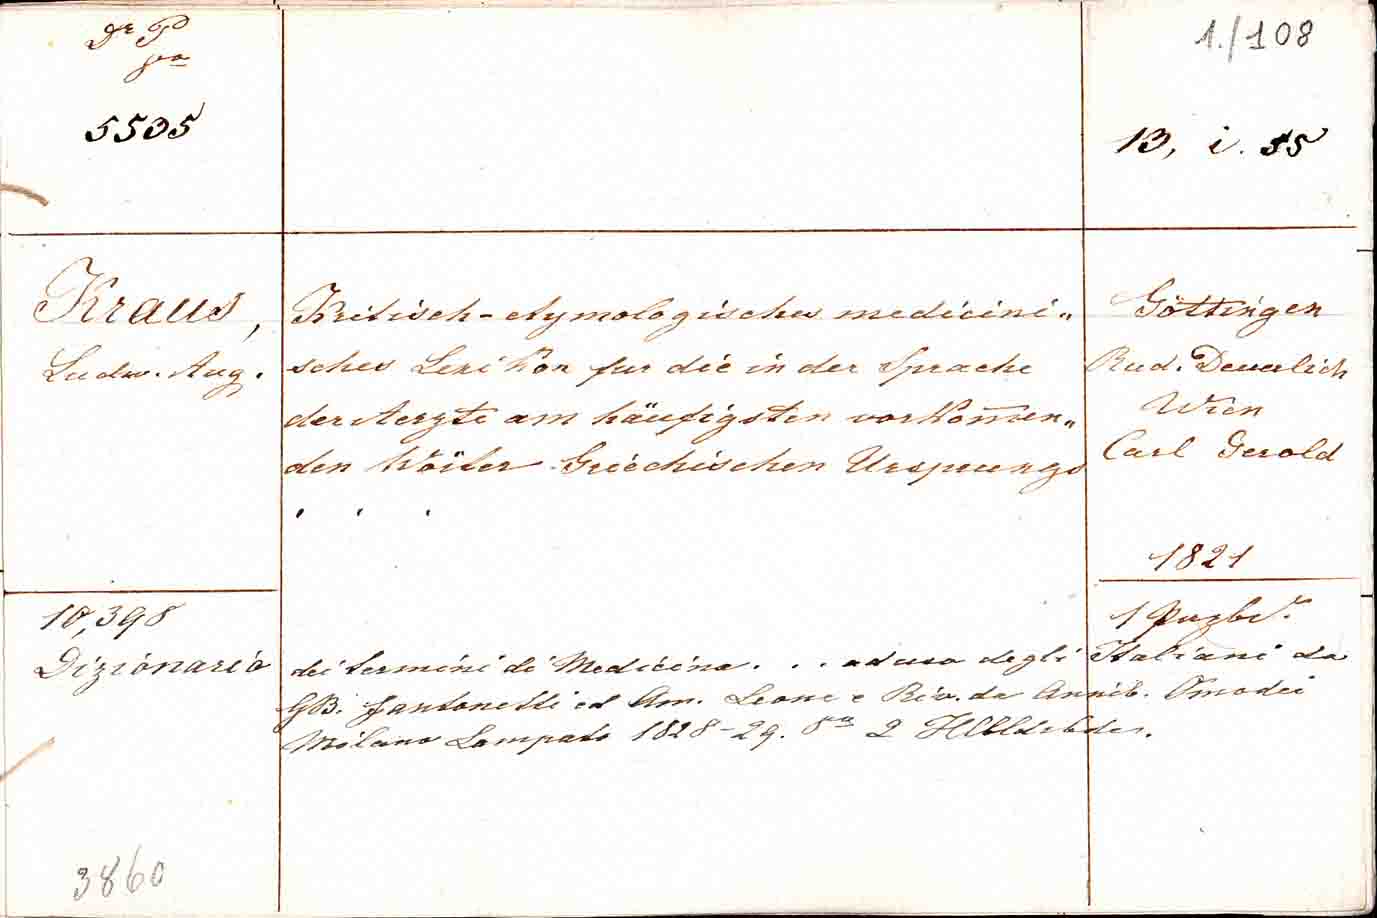 Dr P
1./108
8vo
5535
13, i. 55
Kraus,
Ludw. Aug.
Kritisch-etymologisches medicini„
sches Lexikon fur die in der Sprache
der Aerzte am häufigsten vorkom̅en„
den Wörter Griechischen Ursprungs
. . .
Göttingen
Rud. Deuerlich
Wien
Carl Gerold
1821
1 Ppzbd.
10,398
Dizionario dei termini di Medicina . . . ad uso degli Italiani da
GB. Fantonetti ed Am. Leone e Riv. da Annib. Omodei
Milano Lampato 1828-29. 8vo 2 Hlbldrbde.
3860